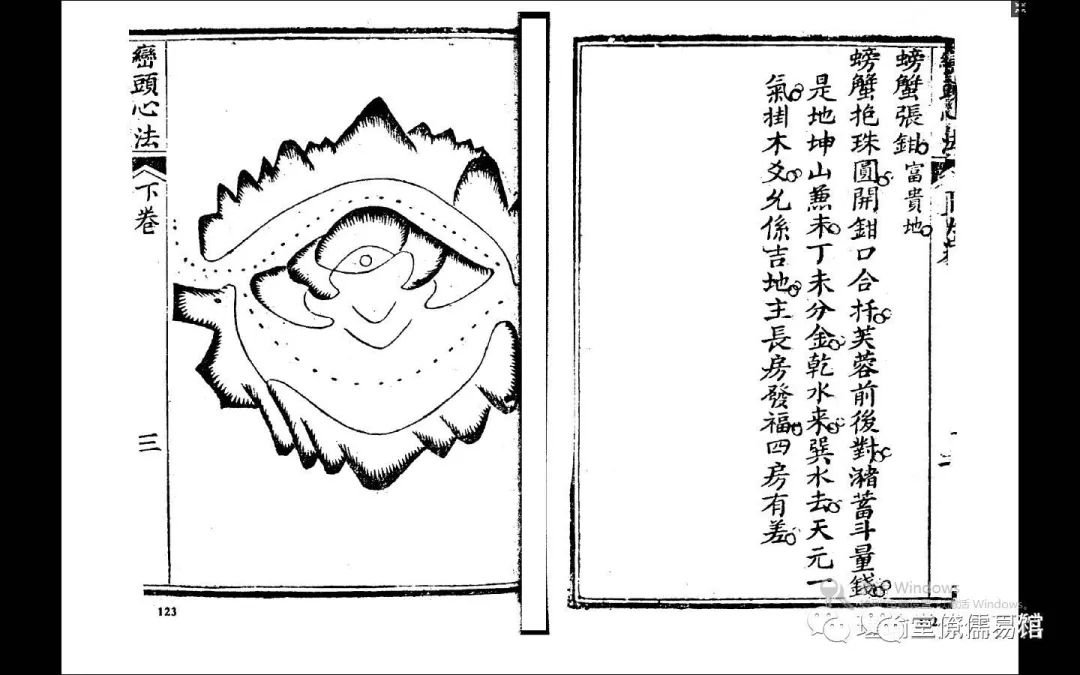 螃蟹張鉗富貴地
螃蟹抱珠圓開鉗口合扦芙蓉前後對瀦蓄斗量錢
是地坤山蒹未丁未分金乾水来巽水去天元一
氣掛木爻允係吉地主長房發福四房有差
巒頭心法
下卷
三
123
Windows
活 Windows